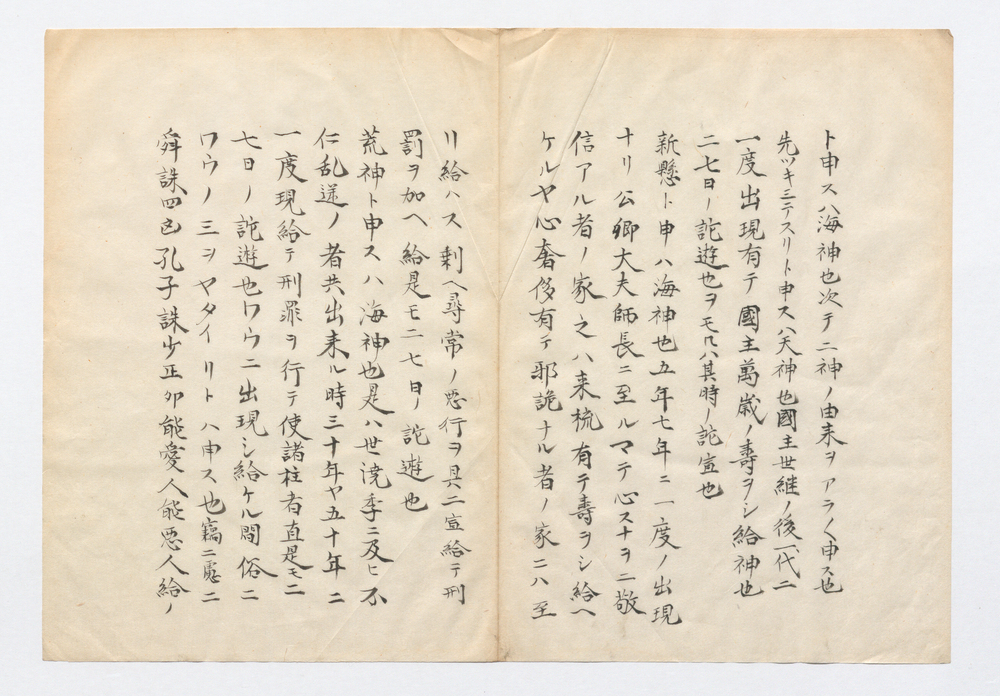 ト申スハ海神也次テ二神ノ由来ヲアラ〱申ス也
先ツキミテスリト申スハ天神也國主世継ノ後一代ニ
一度出現有テ國主萬歳ノ壽ヲシ給神也
二七日ノ託遊也ヲモロハ其時ノ託宣也
新懸ト申ハ海神也五年七年ニ一度ノ出現
ナリ公卿大夫師長ニ至ルマテ心スナヲニ敬
信アル者ノ家之ハ来梳有テ壽ヲシ給ヘ
ケルヤ心奢侈有テ邪詭ナル者ノ家ニハ至
リ給ハス剰ヘ尋常ノ悪行ヲ具ニ宣給テ刑
罰ヲ加ヘ給是モ二七日ノ託遊也
荒神ト申スハ海神也是ハ世澆季ニ及ヒ不
仁乱逆ノ者共出来ル時三十年ヤ五十年ニ
一度現給テ刑罪ヲ行テ使諸柱者直是モ二
七日ノ託遊也ワウニ出現シ給ケル間俗ニ
ワウノ三ヲヤダイリトハ申ス也竊ニ慮ニ
舜誅四凶孔子誅少正卯能愛人能悪人給ノ